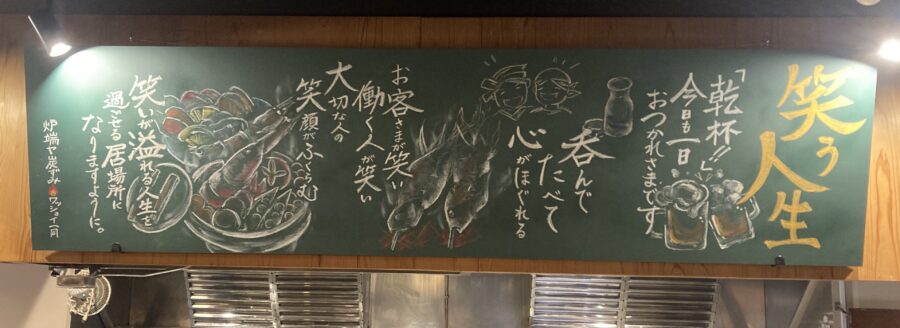 笑う
人生
「乾杯!!」
今日も一日
おつかれさまです
呑んで
たべて
心がほぐれる
お客さまが笑い
働く人が笑い
大切な人の
笑顔がふくらむ
笑いが溢れる人生を
過ごせる居場所に
なりますように。
炉端ヤ炭ずみ
ワッショイ一同